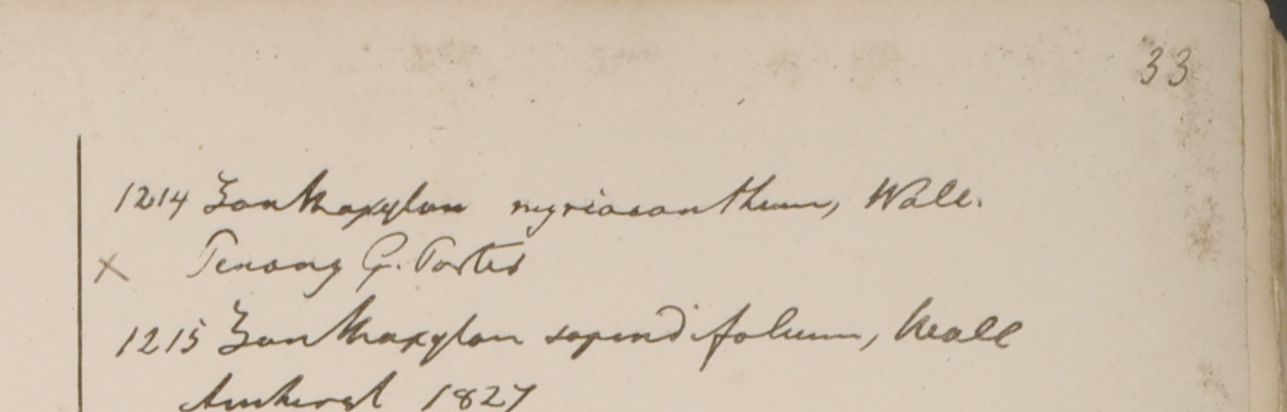 33
1214 Zanthoxylon myriacanthum, Wall.
× Penang G. Porter
1215 Zanthoxylon sapindifolium, Wall
Amherst 1827